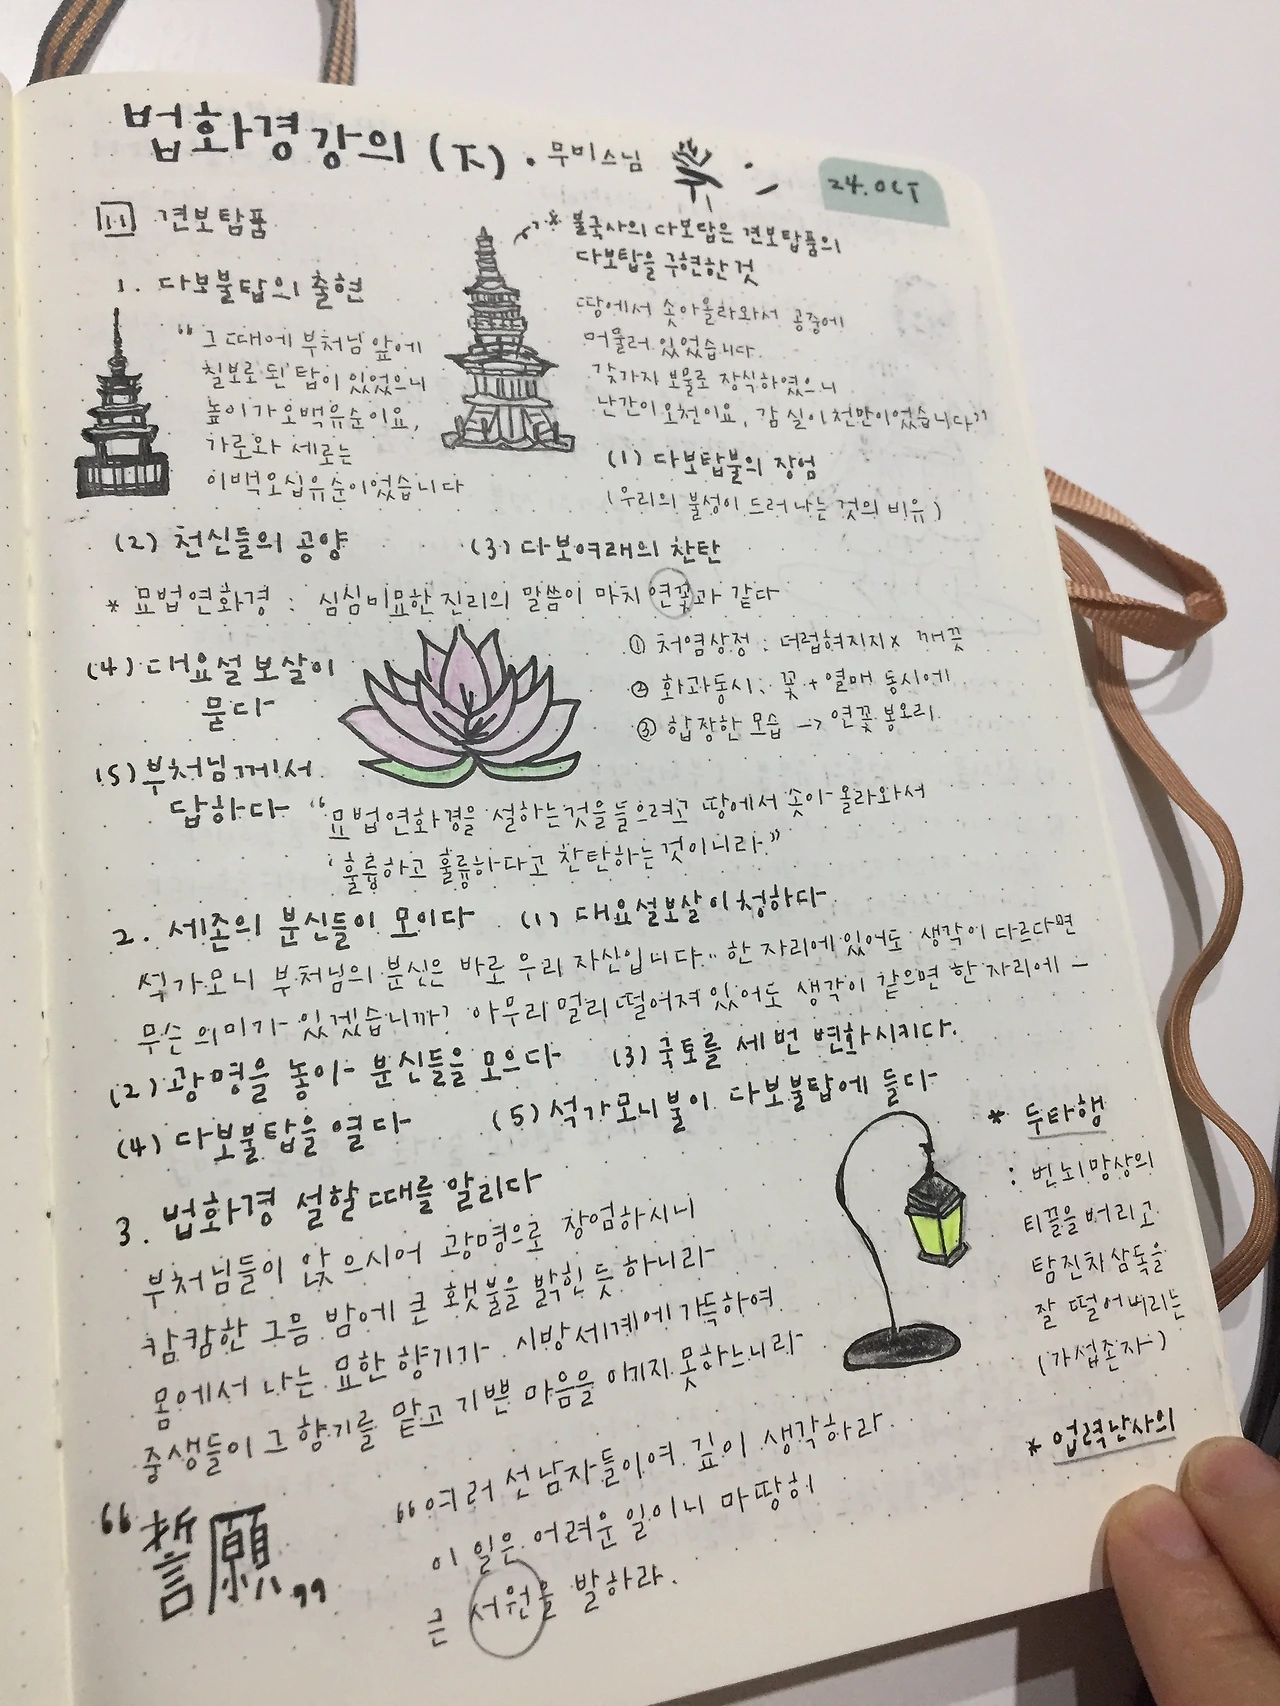 법화경강의 (下). 무비스님
24. OCT
11 견보탑품
1. 다보불탑의 출현
"그때에 부처님 앞에
칠보로 된 탑이 있었으니
높이가 오백유순이요,
가로와 세로는
이백오십유순이었습니다
* 불국사의 다보탑은 견보탑품의
다보탑을 구현한 것
땅에서 솟아올라와서 공중에
머물러 있었습니다.
갖가지 보물로 장식하였으니
난간이 오천이요, 감실이 천만이었습니다"
(1) 다보탑불의 장엄
(우리의 불성이 드러나는 것의 비유)
(2) 천신들의 공양
(3) 다보여래의 찬탄
* 묘법연화경 : 심심미묘한 진리의 말씀이 마치 연꽃과 같다
① 처염상정 : 더럽혀지지x 깨끗
② 화과동시 : 꽃 + 열매 동시에
③ 합장한 모습 -> 연꽃 봉오리
(4) 대요설 보살이
묻다
(5) 부처님께서
답하다
"묘법연화경을 설하는것을 들으려고 땅에서 솟아 올라와서
'훌륭하고 훌륭하다고 찬탄하는 것이니라."
2. 세존의 분신들이 모이다
(1) 대요설보살이 청하다
석가모니 부처님의 분신은 바로 우리 자신입니다.. 한 자리에 있어도 생각이 다르다면
무슨 의미가 있겠습니까? 아무리 멀리 떨어져 있어도 생각이 같으면 한 자리에 –
(2) 광명을 놓아 분신들을 모으다
(3) 국토를 세 번 변화시키다.
(4) 다보불탑을 열다
(5) 석가모니불이 다보불탑에 들다
3. 법화경 설할 때를 알리다
부처님들이 앉으시어 광명으로 장엄하시니
캄캄한 그믐 밤에 큰 횃불을 밝힌 듯 하니라
몸에서 나는 묘한 향기가 시방세계에 가득하여
중생들이 그 향기를 맡고 기쁜 마음을 이기지 못하느니라
* 두타행
: 번뇌 망상의
티끌을 버리고
탐진치 삼독을
잘 떨어버리는
(가섭존자)
* 업력난사의
"誓願"
"여러 선남자들이여 깊이 생각하라
이 일은 어려운 일이니 마땅히
큰 서원을 발하라.